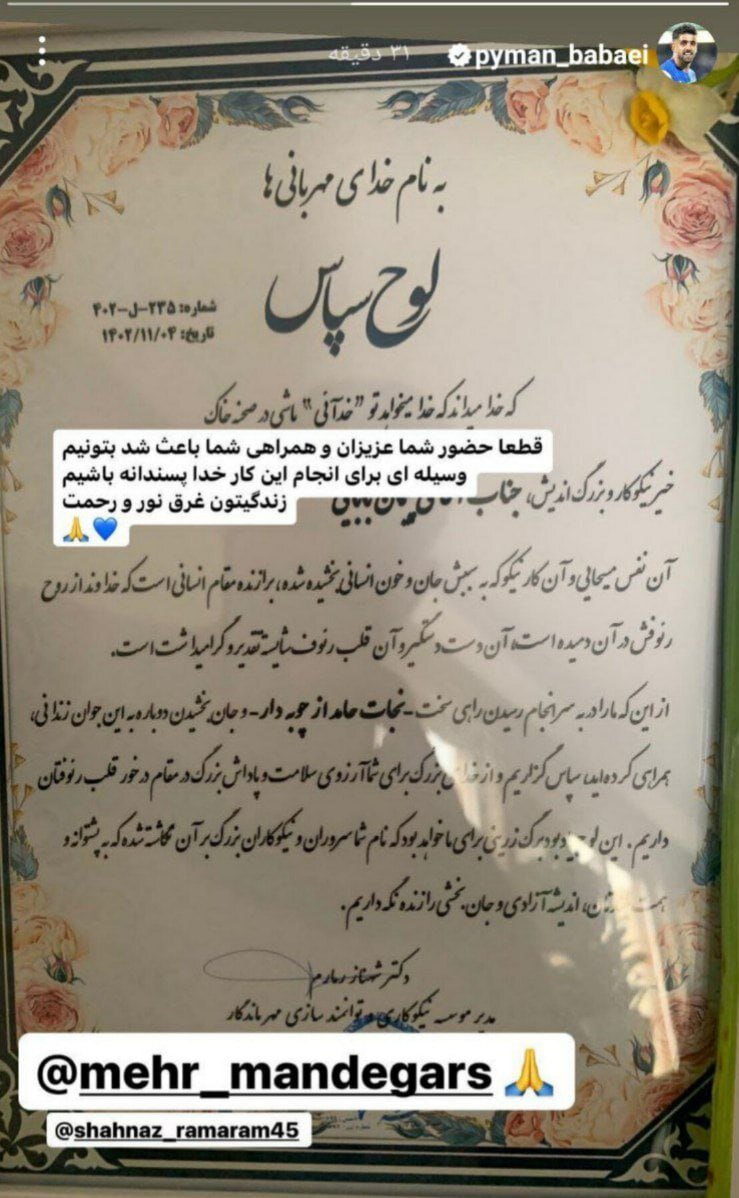 pyman_babaei ۳۱ دقیقه
به نام خدای مهربانی ها
لوح سپاس
شماره: ۲۳۵-ل-۴۰۲
تاریخ: ۱۴۰۲/۱۱/۰۴
که خدا میداند که خدا میخواهد تو "خدآئی" باشی در صحنه خاک
قطعا حضور شما عزیزان و همراهی شما باعث شد بتونیم
وسیله ای برای انجام این کار خدا پسندانه باشیم
زندگیتون غرق نور و رحمت
🙏💙
خیر نیکوکار و بزرگ اندیش، جناب
آن نفس مسیحایی و آن کار نیکو که به سببش جان و خون انسانی بخشیده شده، برازنده مقام انسانی است که خداوند از روح
رئوفش در آن دمیده است، آن دست دستگیر و آن قلب رئوف شایسته تقدیر و گرامیداشت است.
از این که ما را در به سرانجام رسیدن راهی سخت -نجات حامد از چوبه دار- و جان بخشیدن دوباره به این جوان زندانی،
همراهی کرده اید، سپاس گزاریم و از خدای بزرگ برای شما آرزوی سلامت و پاداش بزرگ در مقام در خور قلب رئوفتان
داریم. این لوح یادبود برگ زرینی برای ما خواهد بود که نام شما سروران و نیکوکاران بزرگ بر آن نگاشته شده که به پشتوانه و
اندیشه آزادی و جان بخشی را زنده نگه داریم.
دکتر شهناز رمارم
مدیر موسسه نیکوکاری و توانمند سازی مهر ماندگار
@mehr_mandegars 🙏
@shahnaz_ramaram45